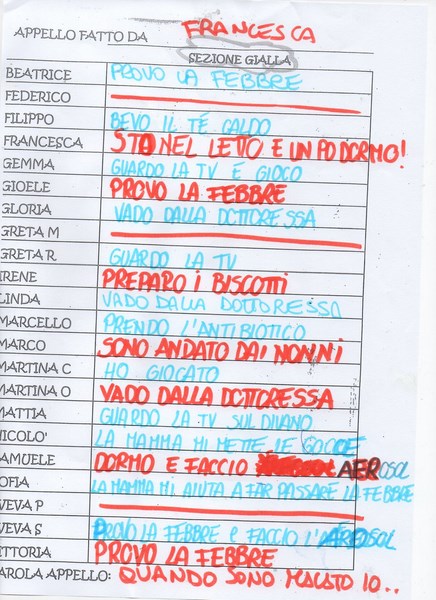 APPELLO FATTO DA FRANCESCA
SEZIONE GIALLA
BEATRICE PROVO LA FEBBRE
FEDERICO
FILIPPO BEVO IL TÉ CALDO
FRANCESCA STO NEL LETTO E UN PO DORMO!
GEMMA GUARDO LA TV E GIOCO
GIOELE PROVO LA FEBBRE
GLORIA VADO DALLA DOTTORESSA
GRETA M
GRETA R GUARDO LA TV
IRENE PREPARO I BISCOTTI
LINDA VADO DALLA DOTTORESSA
MARCELLO PRENDO L'ANTIBIOTICO
MARCO SONO ANDATO DAI NONNI
MARTINA C HO GIOCATO
MARTINA O VADO DALLA DOTTORESSA
MATTIA GUARDO LA TV SUL DIVANO
NICOLO' LA MAMMA MI METTE LE GOCCE
AMUELE DORMO E FACCIO AEROSOL
OFIA LA MAMMA MI AIUTA A FAR PASSARE LA FEBBRE
VEVA P
VEVA S PROVO LA FEBBRE E FACCIO L'AEROSOL
ITTORIA PROVO LA FEBBRE
AROLA APPELLO: QUANDO SONO MALATO IO..